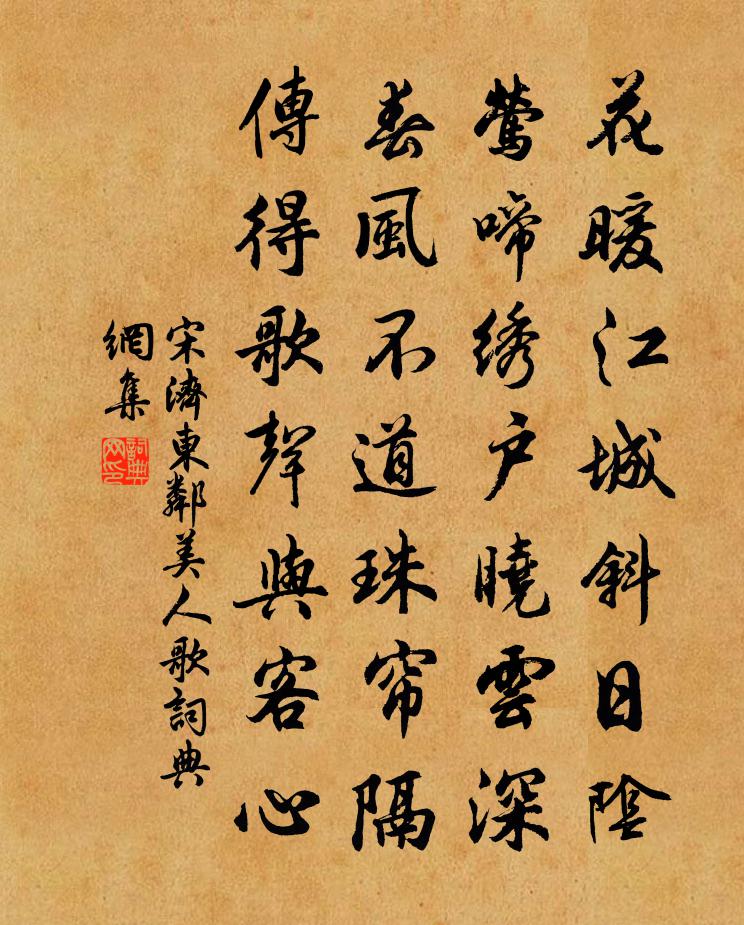 花暖江城斜日陰
鶯啼绣户曉雲深
春風不道珠帘隔
傳得歌聲與客心
宋濟東鄰美人歌詞典
網集
詞典
网印